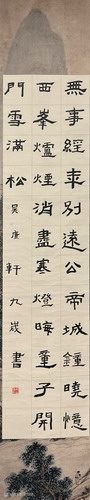 無事經年別遠公帝城鐘曉憶
西峯爐煙消盡寒燈晦童子開
門雪滿松吴庚軒九歲書